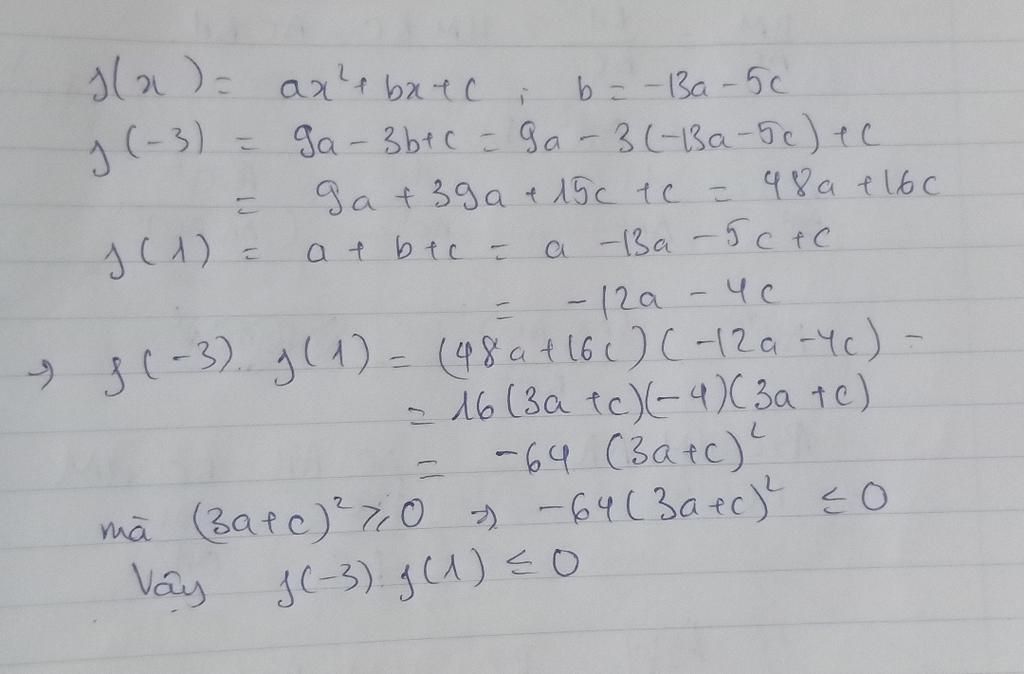 f(x) = ax² + bx + c ; b = -13a - 5c
f(-3) = 9a - 3b + c = 9a - 3(-13a - 5c) + c
= 9a + 39a + 15c + c = 48a + 16c
f(1) = a + b + c = a - 13a - 5c + c
= -12a - 4c
→ f(-3). f(1) = (48a + 16c)(-12a - 4c) =
= 16(3a + c)(-4)(3a + c)
= -64 (3a + c)²
mà (3a + c)² ≥ 0 → -64(3a + c)² ≤ 0
Vậy f(-3). f(1) ≤ 0